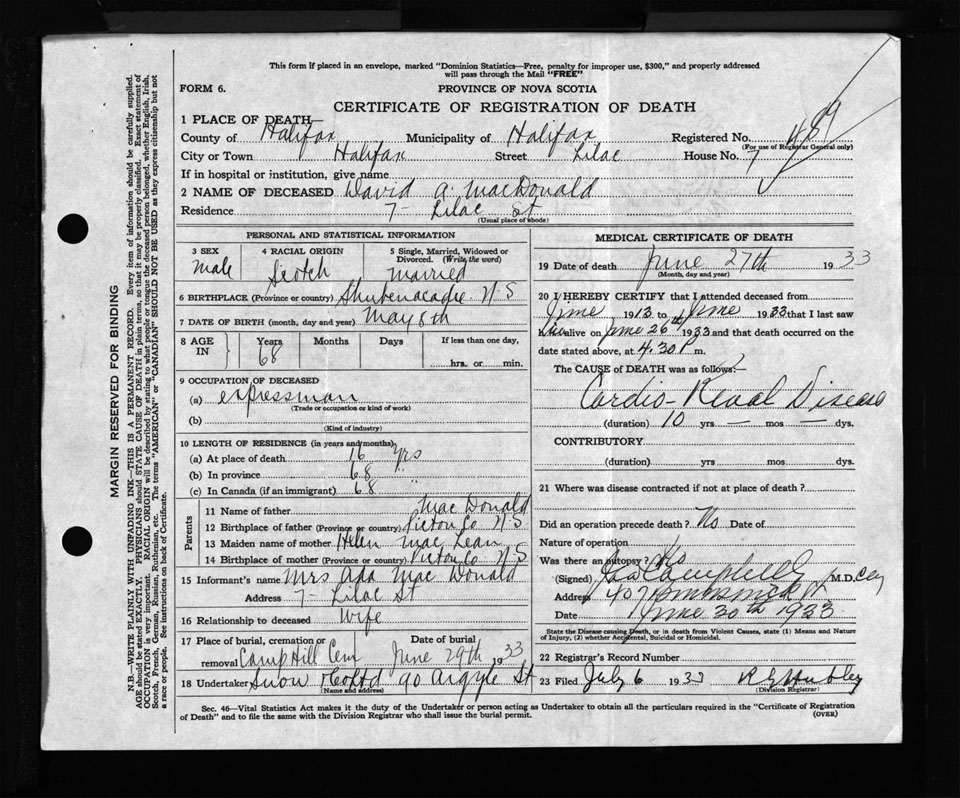 This form if placed in an envelope, marked "Dominion Statistics—Free, penalty for improper use, $300," and properly addressed
will pass through the Mail "FREE"
FORM 6. PROVINCE OF NOVA SCOTIA
CERTIFICATE OF REGISTRATION OF DEATH
1 PLACE OF DEATH—
County of Halifax Municipality of Halifax Registered No. 489
(For use of Registrar General only)
City or Town Halifax Street Lilac House No. 7
If in hospital or institution, give name
2 NAME OF DECEASED David A. MacDonald
Residence 7 - Lilac St
(Usual place of abode)
PERSONAL AND STATISTICAL INFORMATION
3 SEX 4 RACIAL ORIGIN 5 Single, Married, Widowed or Divorced. (Write the word)
Male Scotch Married
6 BIRTHPLACE (Province or country) Shubenacadie N S
7 DATE OF BIRTH (month, day and year) May 8th
8 AGE IN Years Months Days If less than one day,
68 hrs. or min.
9 OCCUPATION OF DECEASED
(a) expressman
(Trade or occupation or kind of work)
(b)
(Kind of industry)
10 LENGTH OF RESIDENCE (in years and months)
(a) At place of death 16 yrs
(b) In province 68 "
(c) In Canada (if an immigrant) 68 "
Parents
11 Name of father MacDonald
12 Birthplace of father (Province or country) Pictou Co N S
13 Maiden name of mother Helen MacLean
14 Birthplace of mother (Province or country) Pictou Co N S
15 Informant's name Mrs Ada MacDonald
Address 7 - Lilac St
16 Relationship to deceased Wife
17 Place of burial, cremation or removal Camp Hill Cem Date of burial June 29th 1933
18 Undertaker Snow & Co Ltd 90 Argyle St
(Name and address)
MEDICAL CERTIFICATE OF DEATH
19 Date of death June 27th 1933
(Month, day and year)
20 I HEREBY CERTIFY that I attended deceased from
June 1913 to June 1933 that I last saw
him alive on June 26th 1933 and that death occurred on
date stated above, at 4.30 P m.
The CAUSE OF DEATH was as follows:—
Cardio-Renal Disease
(duration) 10 yrs — mos — dys.
CONTRIBUTORY
(duration) yrs mos dys.
21 Where was disease contracted if not at place of death?
Did an operation precede death? No Date of
Nature of operation
Was there an autopsy? No
(Signed) Campbell M.D.
Address 407 Brunswick St
Date June 30th 1933
State the Disease causing Death, or in death from Violent Causes, state (1) Means and Nature
of Injury, (2) whether Accidental, Suicidal or Homicidal.
22 Registrar's Record Number
23 Filed July 6 1933 Hubley
(Division Registrar)
Sec. 46—Vital Statistics Act makes it the duty of the Undertaker or person acting as Undertaker to obtain all the particulars required in the "Certificate of Registration
of Death" and to file the same with the Division Registrar who shall issue the burial permit. (OVER)
MARGIN RESERVED FOR BINDING
N.B.—WRITE PLAINLY WITH UNFADING INK—THIS IS A PERMANENT RECORD. Every item of information should be carefully supplied.
AGE should be stated EXACTLY. PHYSICIANS should STATE CAUSE OF DEATH in plain terms, so that it may be properly classified. Exact statement of
OCCUPATION is very important. RACIAL ORIGIN will be described by stating to what people or tongue the deceased person belonged, whether English, Irish,
Scotch, French, German, Russian, Ruthenian, etc. The terms "AMERICAN" or "CANADIAN" SHOULD NOT BE USED as they express citizenship but not
a race or people. See instructions on back of Certificate.